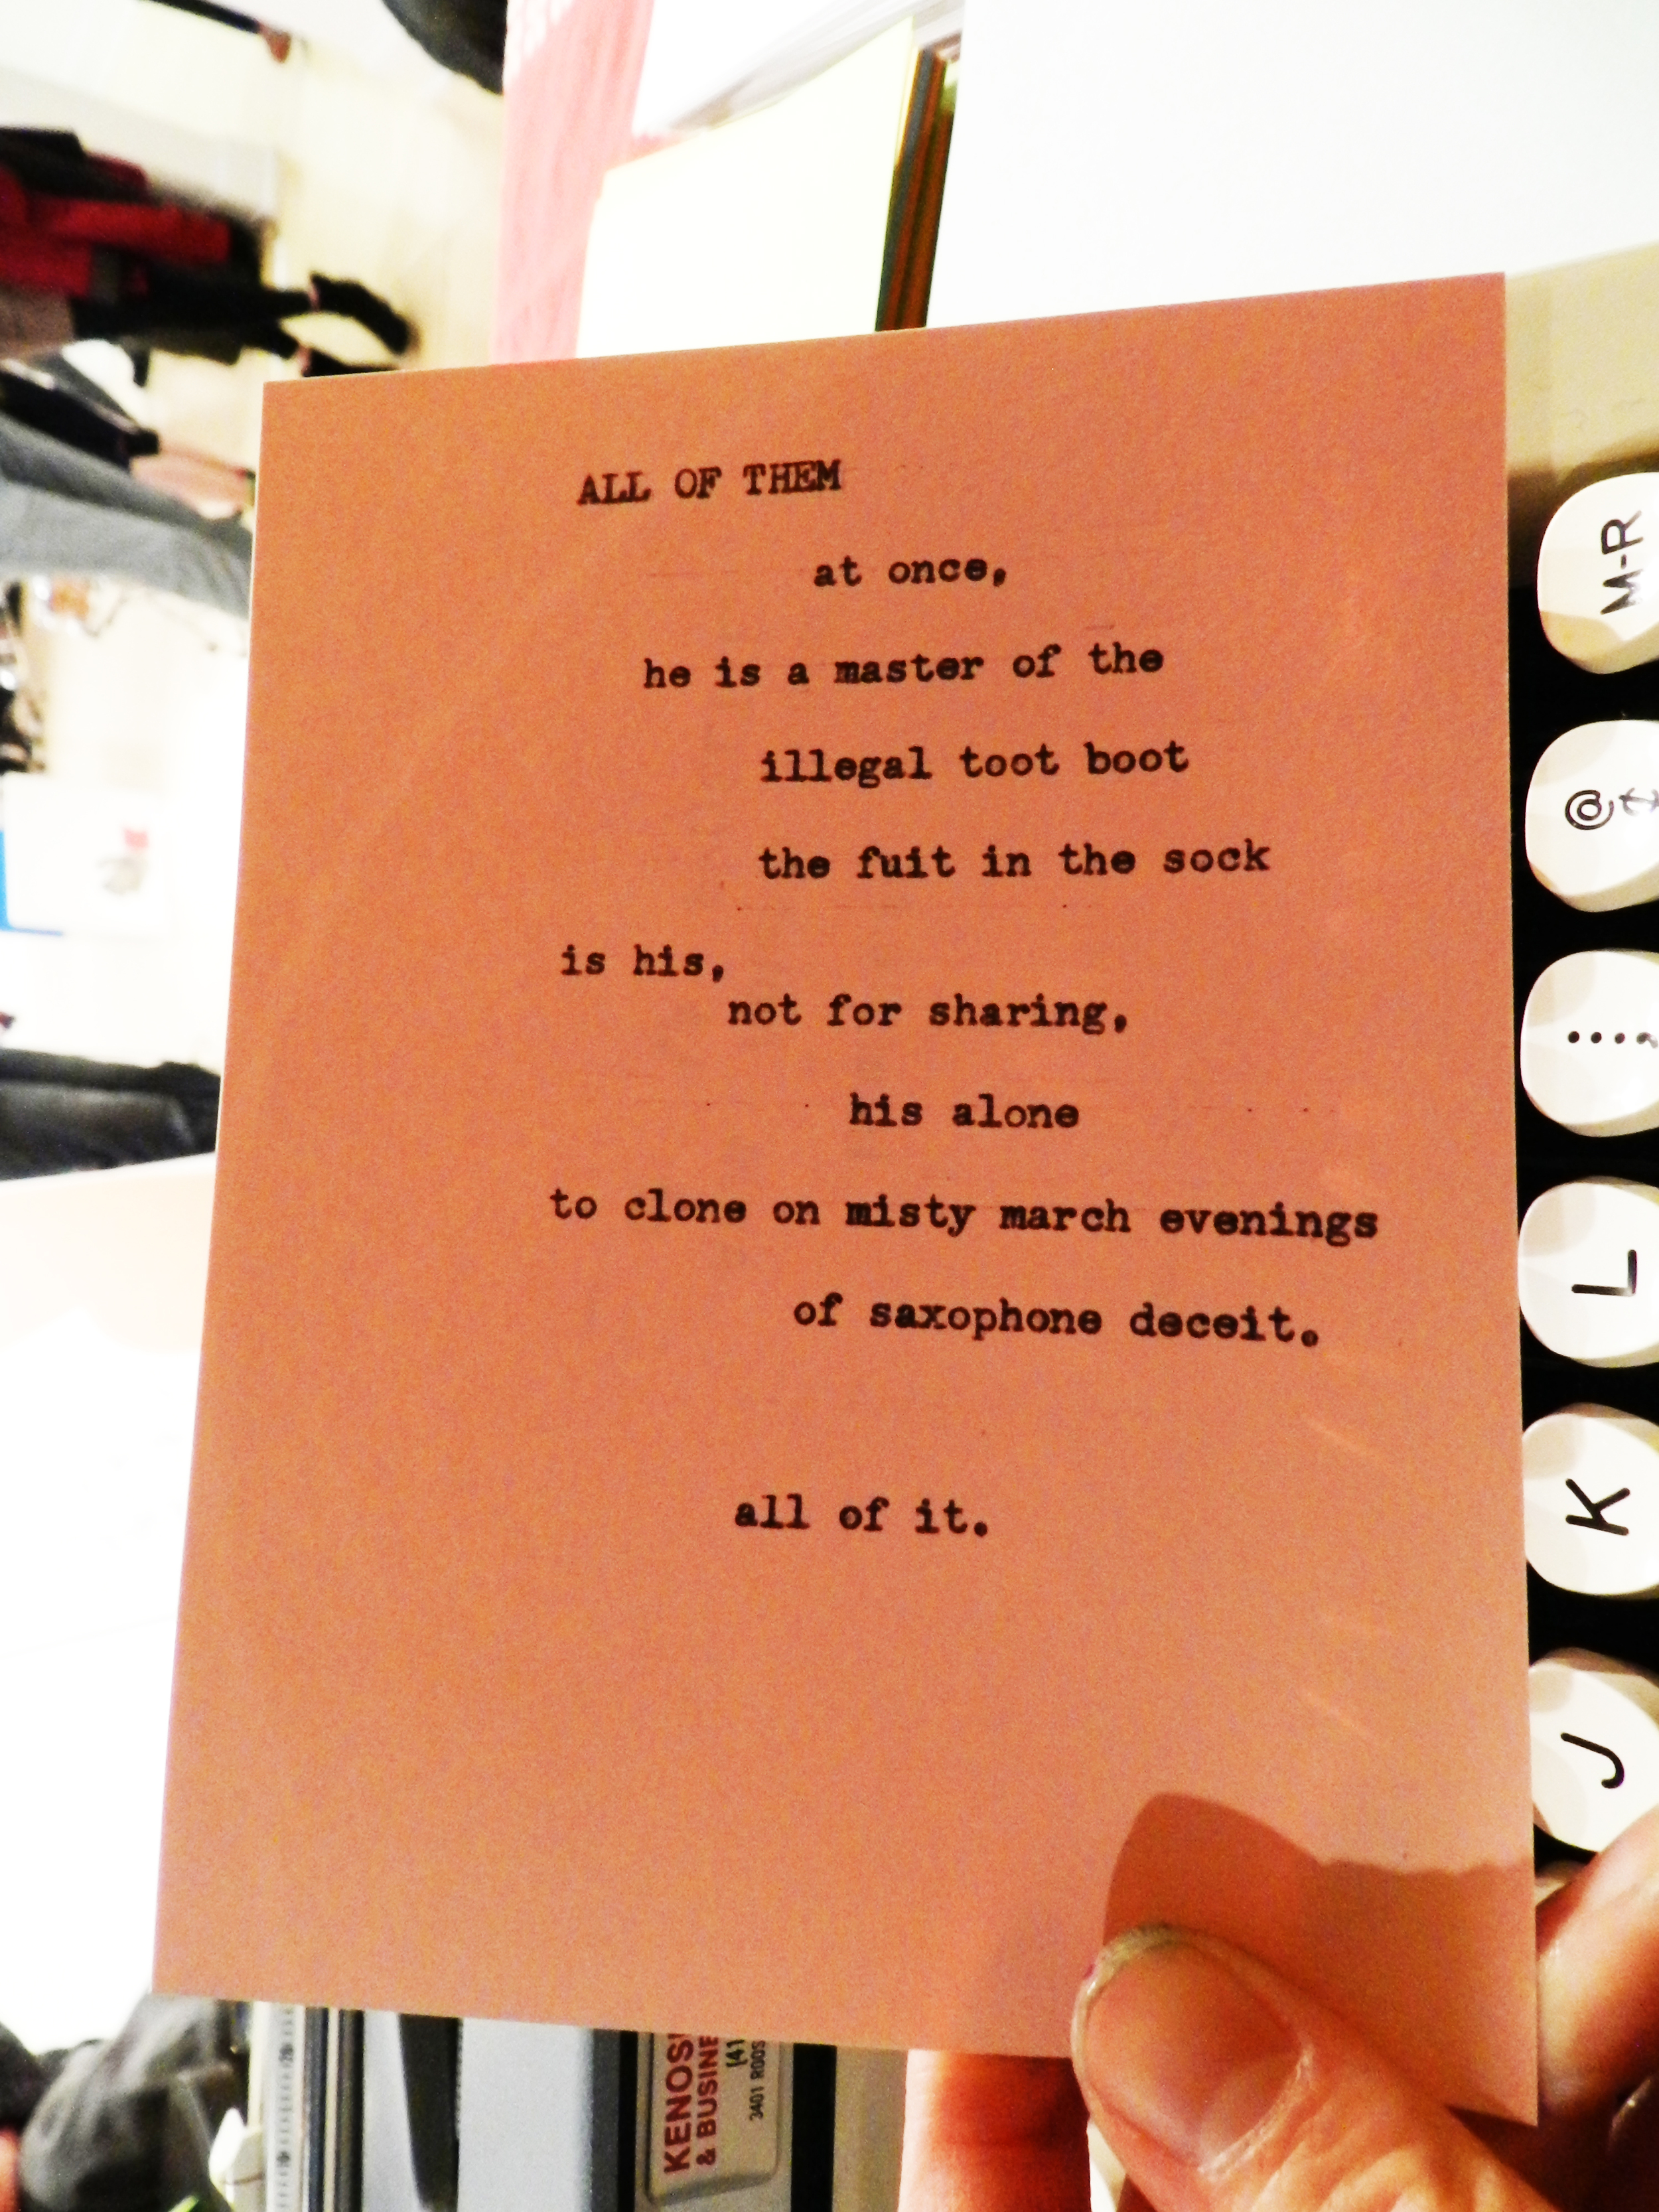 ALL OF THEM
at once,
he is a master of the
illegal toot boot
the fuit in the sock
is his,
not for sharing,
his alone
to clone on misty march evenings
of saxophone deceit.
all of it.
M-R
@
:
;
L
K
J
& BUSINE
(41
3401 ROOS